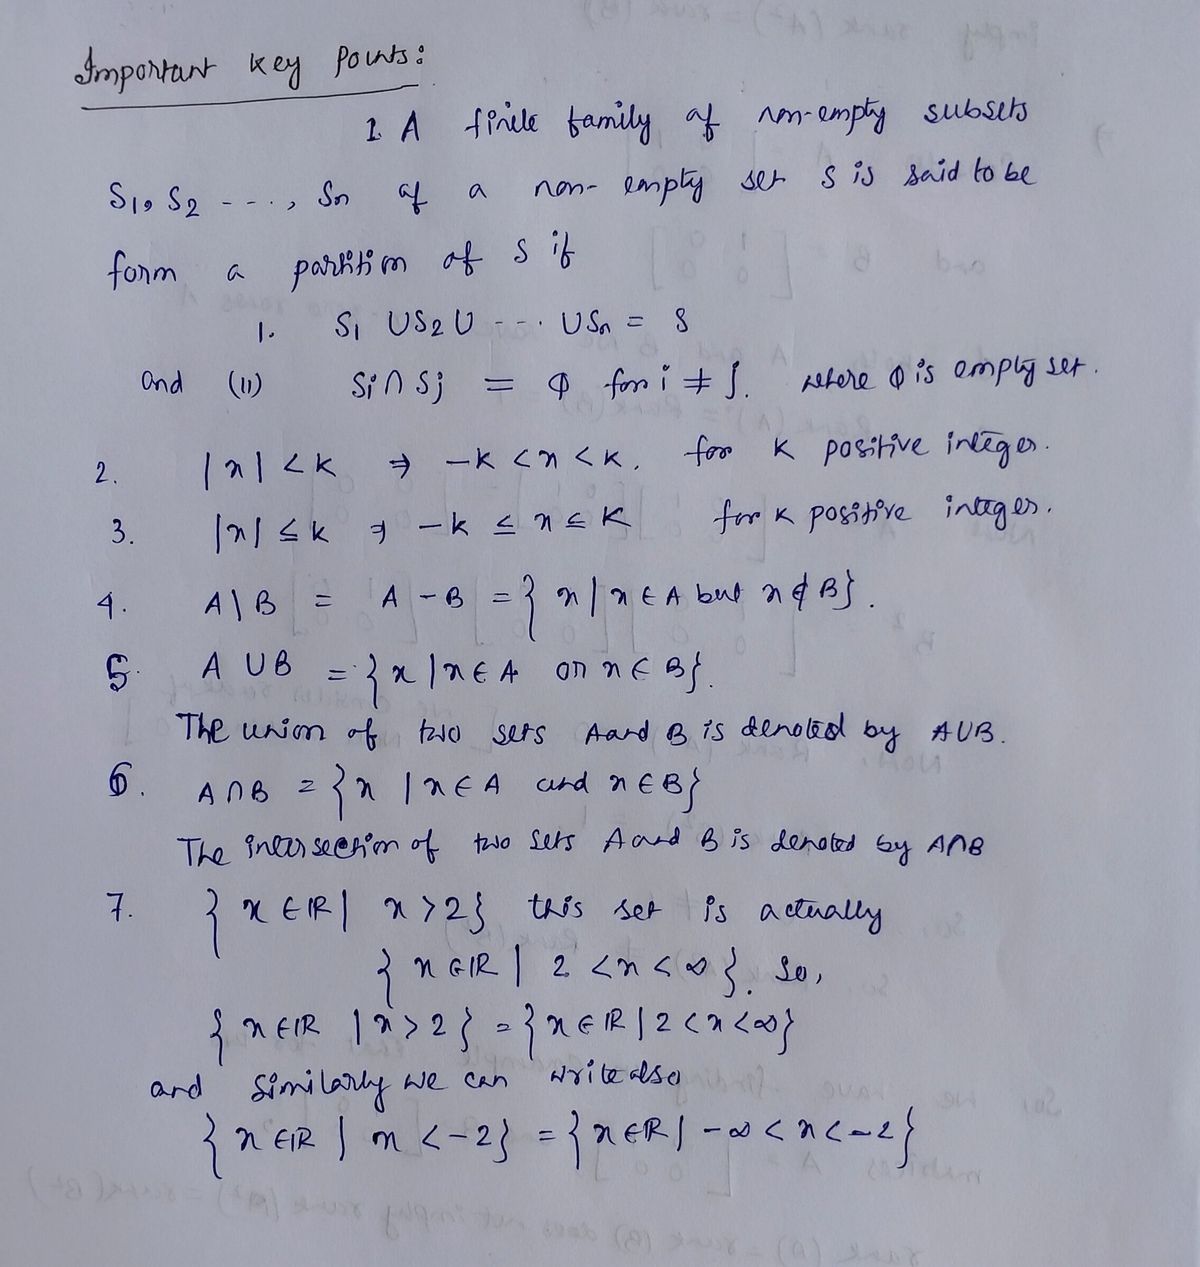 Important key Points:
1. A finite family of non-empty subsets
S1, S2 ----, Sn of a non-empty set S is said to be
form a partition of S if
1. S1 ∪ S2 ∪ --- ∪ Sn = S
and (11) Si ∩ Sj = Φ for i ≠ j. where Φ is empty set.
2. |x| < K ⇒ -K < x < K. for K positive integer.
3. |x| ≤ k ⇒ -k ≤ x ≤ K for K positive integer.
4. A\B = A - B = {x | x ∈ A but x ∉ B}.
5. A ∪ B = {x | x ∈ A or x ∈ B}.
The union of two sets A and B is denoted by A∪B.
6. A∩B = {x | x ∈ A and x ∈ B}
The intersection of two sets A and B is denoted by A∩B
7. {x ∈ ℝ | x > 2} this set is actually
{x ∈ ℝ | 2 < x < ∞}. So,
{x ∈ ℝ | x > 2} = {x ∈ ℝ | 2 < x < ∞}
and similarly we can write also
{x ∈ ℝ | x < -2} = {x ∈ ℝ | -∞ < x < -2}